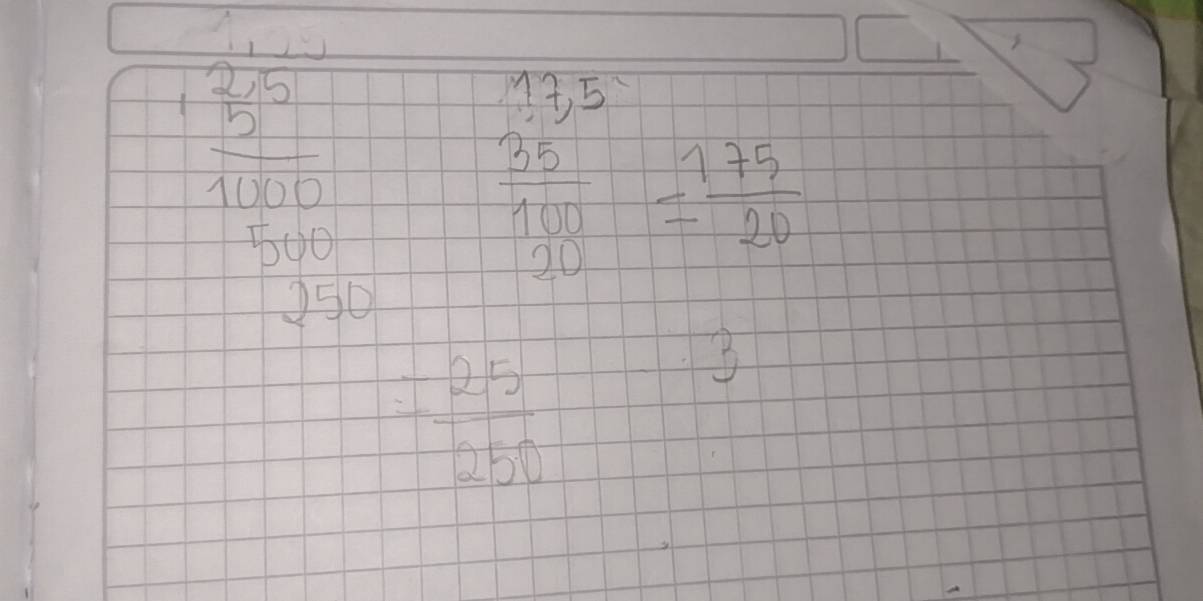 2,5
5
1000
500
250
17,5
35
100
20
= 175
20
= 25
250
3